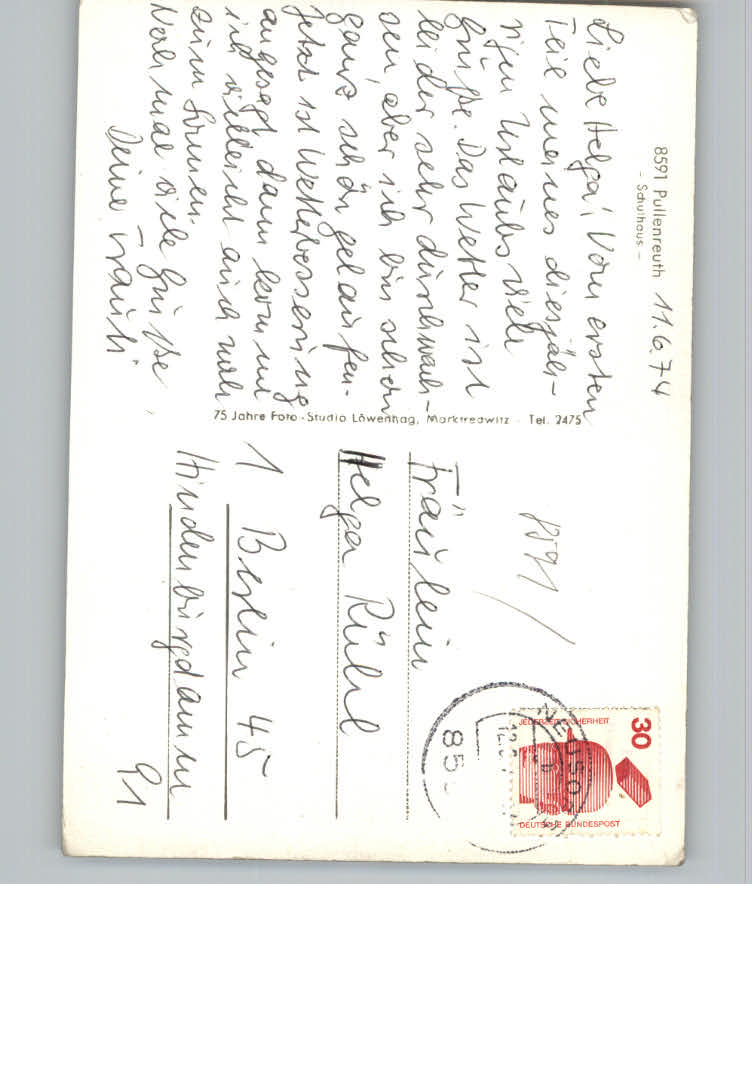 8591 Pullenreuth
- Schulhaus -
11.6.74
Liebe Helga! Vom ersten
Teil meines diesjäh-
rigen Urlaubs viele
Grüße. Das Wetter ist
leider sehr durchwach-
sen, aber ich bin schon
ganz schön gelaufen.
Jetzt ist Wetterbesserung
angesagt, dann komme
ich vielleicht auch noch
zum Sonnen.
Nochmal viele Grüße,
Deine
75 Jahre Foto-Studio Löwenhag, Marktredwitz · Tel. 2475
8591
Fräulein
Helga Rühl
1 Berlin 45
Hindenburgdamm
91
30
JEDERZEIT SICHERHEIT
DEUTSCHE BUNDESPOST
NEUSO
12.6
85